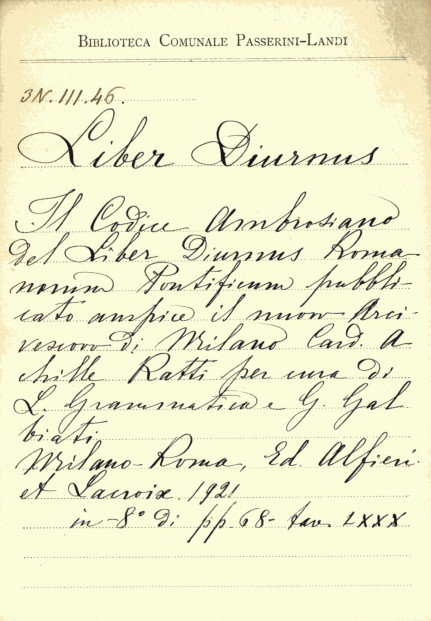 BIBLIOTECA COMUNALE PASSERINI-LANDI
3N.III.46.
Liber Diurnus
Il Codice Ambrosiano
del Liber Diurnus Roma-
norum Pontificum pubbli-
cato auspice il nuovo Arci-
vescovo di Milano Card. A
chille Ratti per cura di
L. Grammatica e G. Gal
biati.
Milano-Roma, Ed. Alfieri
et Lacroix. 1921
in-8° di pp. 68- tav. LXXX